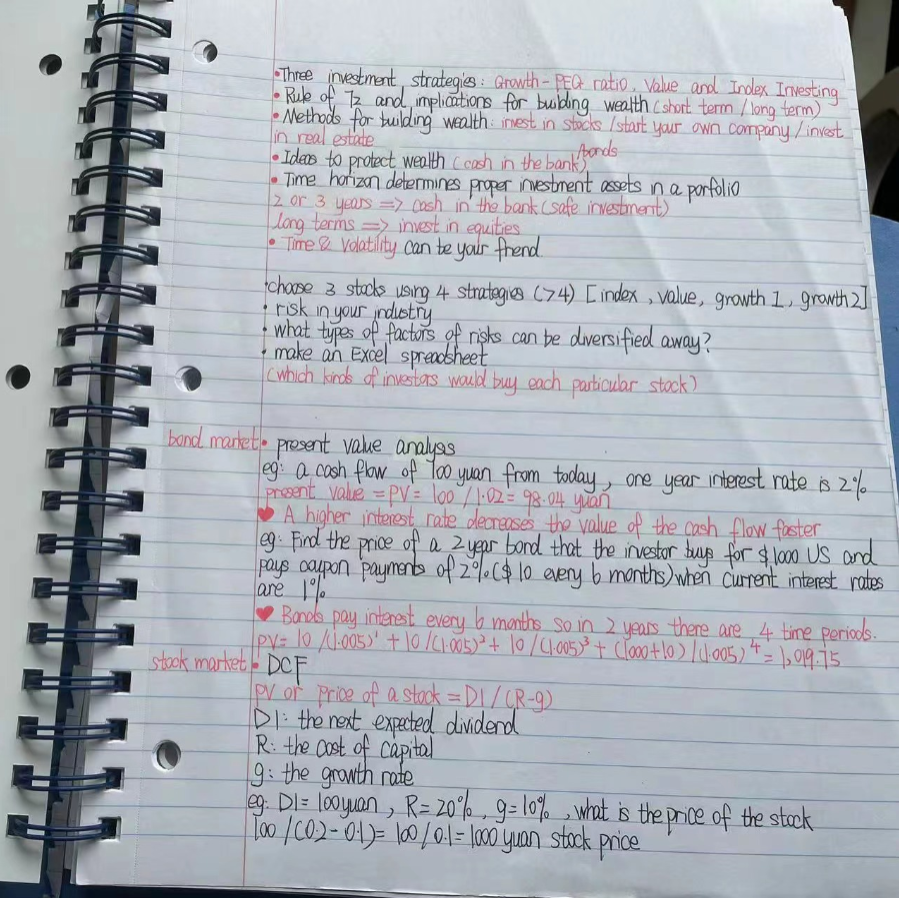 • Three investment strategies: Growth - PEG ratio, Value and Index Investing
• Rule of 72 and implications for building wealth (short term / long term)
• Methods for building wealth: invest in stocks / start your own company / invest
in real estate
/bonds
• Ideas to protect wealth (cash in the bank)
• Time horizon determines proper investment assets in a porfolio
2 or 3 years => cash in the bank (safe investment)
long terms => invest in equities
• Time & Volatility can be your friend
• choose 3 stocks using 4 strategies (>4) [index, value, growth 1, growth 2]
• risk in your industry
• what types of factors of risks can be diversified away?
• make an Excel spreadsheet
(which kinds of investors would buy each particular stock)
bond market • present value analysis
eg: a cash flow of 100 yuan from today, one year interest rate is 2%
present value = PV = 100 / 1.02 = 98.04 yuan
♥ A higher interest rate decreases the value of the cash flow faster
eg: Find the price of a 2 year bond that the investor buys for $1000 US and
pays coupon payments of 2% ($10 every 6 months) when current interest rates
are 1%
♥ Bonds pay interest every 6 months so in 2 years there are 4 time periods.
PV = 10 / (1.005)¹ + 10 / (1.005)² + 10 / (1.005)³ + (1000+10) / (1.005)⁴ = 1,019.75
stock market • DCF
PV or Price of a stock = D1 / (R-g)
D1: the next expected dividend
R: the cost of capital
g: the growth rate
eg: D1 = 100 yuan, R = 20%, g = 10%, what is the price of the stock
100 / (0.2 - 0.1) = 100 / 0.1 = 1000 yuan stock price